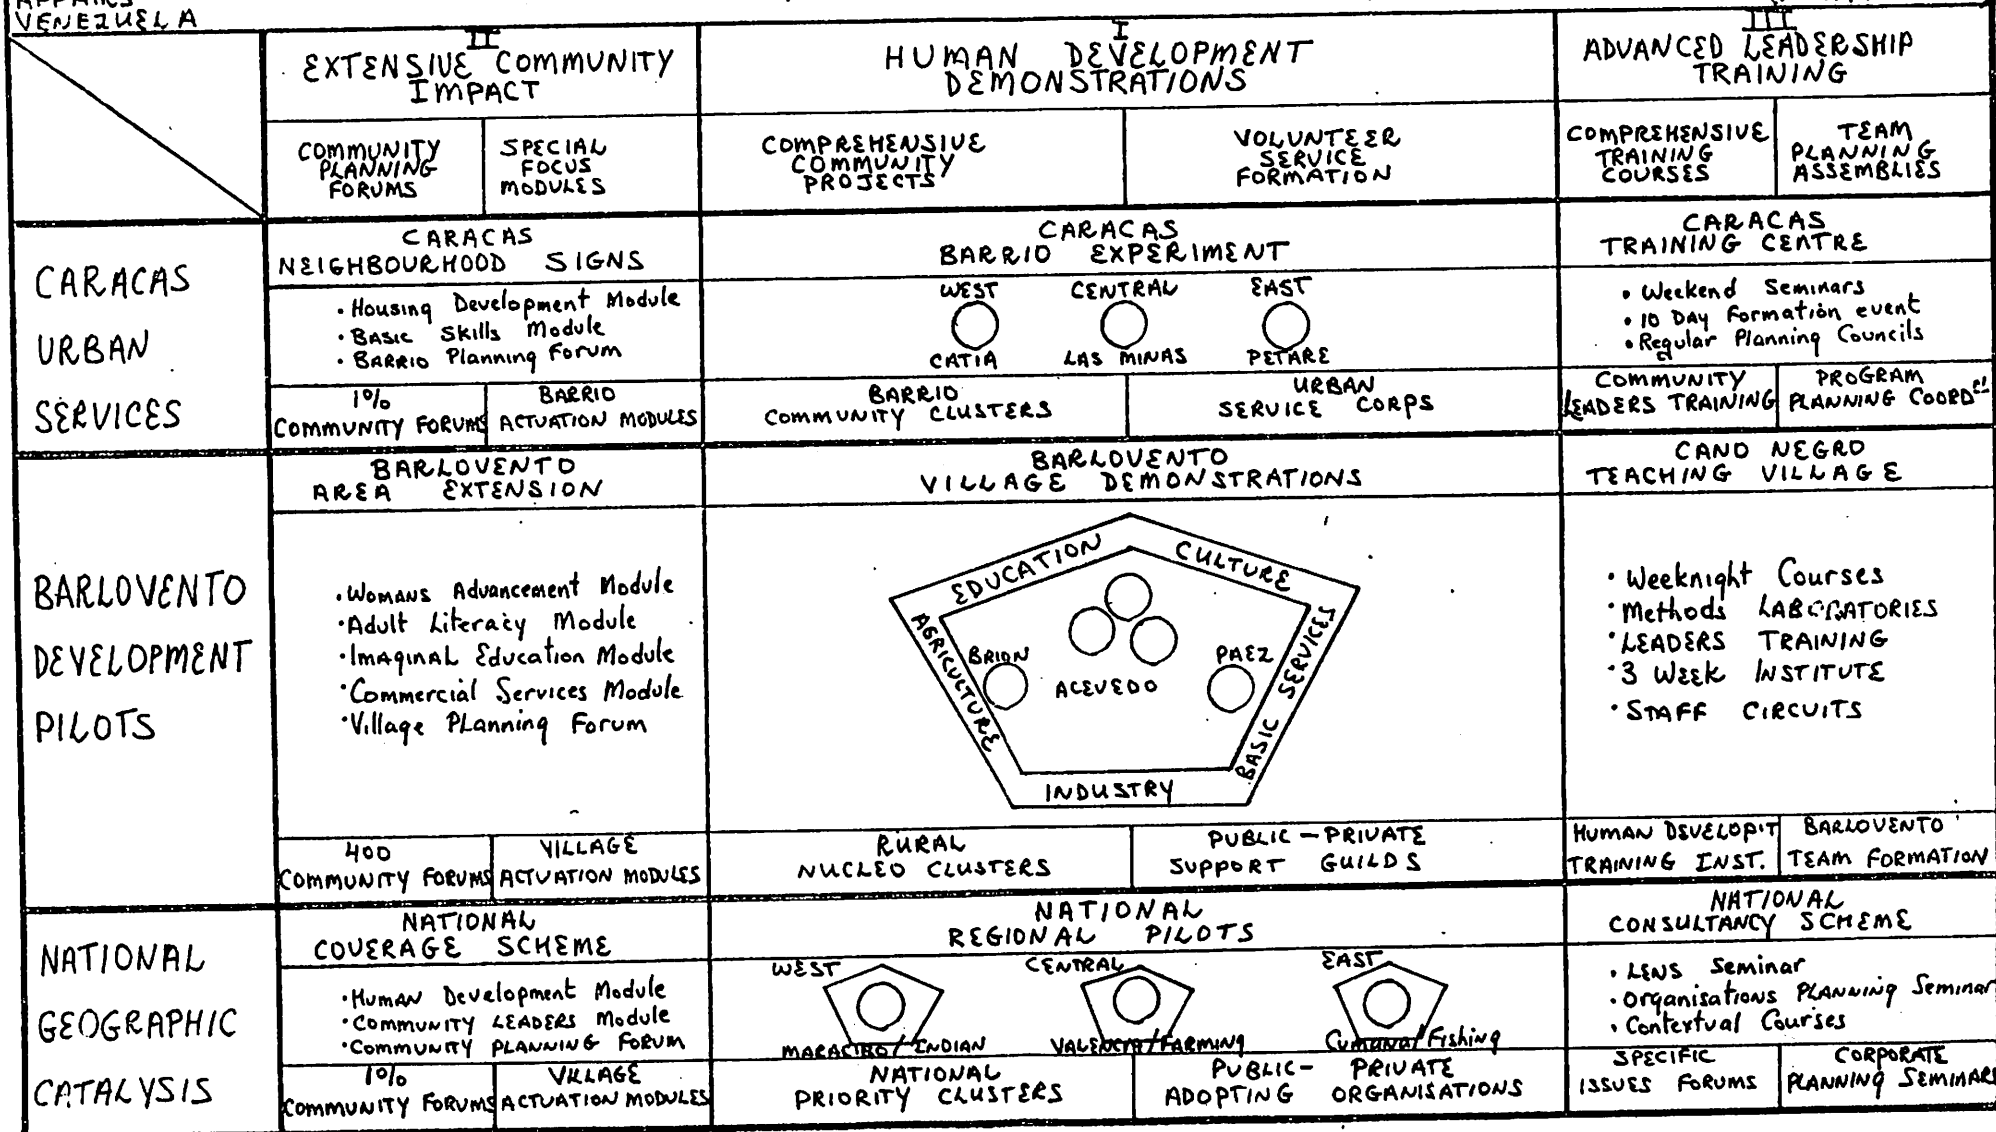 VENEZUELA
II
EXTENSIVE COMMUNITY
IMPACT
I
HUMAN DEVELOPMENT
DEMONSTRATIONS
III
ADVANCED LEADERSHIP
TRAINING
COMMUNITY
PLANNING
FORUMS
SPECIAL
FOCUS
MODULES
COMPREHENSIVE
COMMUNITY
PROJECTS
VOLUNTEER
SERVICE
FORMATION
COMPREHENSIVE
TRAINING
COURSES
TEAM
PLANNING
ASSEMBLIES
CARACAS
URBAN
SERVICES
CARACAS
NEIGHBOURHOOD SIGNS
• Housing Development Module
• BASIC Skills Module
• BARRIO Planning Forum
1%
COMMUNITY FORUMS
BARRIO
ACTUATION MODULES
CARACAS
BARRIO EXPERIMENT
WEST
CENTRAL
EAST
CATIA
LAS MINAS
PETARE
BARRIO
COMMUNITY CLUSTERS
URBAN
SERVICE CORPS
CARACAS
TRAINING CENTRE
• Weekend Seminars
• 10 DAY Formation event
• Regular Planning Councils
COMMUNITY
LEADERS TRAINING
PROGRAM
PLANNING COORD
BARLOVENTO
DEVELOPMENT
PILOTS
BARLOVENTO
AREA EXTENSION
• WOMANS Advancement Module
• Adult Literacy Module
• IMAGINAL Education Module
• Commercial Services Module
• Village PLanning Forum
400
COMMUNITY FORUMS
VILLAGE
ACTUATION MODULES
BARLOVENTO
VILLAGE DEMONSTRATIONS
EDUCATION
CULTURE
AGRICULTURE
BASIC SERVICES
INDUSTRY
BRION
ACEVEDO
PAEZ
RURAL
NUCLEO CLUSTERS
PUBLIC - PRIVATE
SUPPORT GUILDS
CANO NEGRO
TEACHING VILLAGE
• Weeknight Courses
• Methods LABORATORIES
• LEADERS TRAINING
• 3 WEEK INSTITUTE
• STAFF CIRCUITS
HUMAN DEVELOP'T
TRAINING INST.
BARLOVENTO
TEAM FORMATION
NATIONAL
GEOGRAPHIC
CATALYSIS
NATIONAL
COVERAGE SCHEME
• Human Development Module
• COMMUNITY LEADERS Module
• COMMUNITY PLANNING FORUM
1%
COMMUNITY FORUMS
VILLAGE
ACTUATION MODULES
NATIONAL
REGIONAL PILOTS
WEST
CENTRAL
EAST
MARACIBO / INDIAN
VALENCIA / FARMING
Cumana / Fishing
NATIONAL
PRIORITY CLUSTERS
PUBLIC- PRIVATE
ADOPTING ORGANISATIONS
NATIONAL
CONSULTANCY SCHEME
• LENS Seminar
• Organisations PLANNING Seminar
• Contextual Courses
SPECIFIC
ISSUES FORUMS
CORPORATE
PLANNING SEMINARS